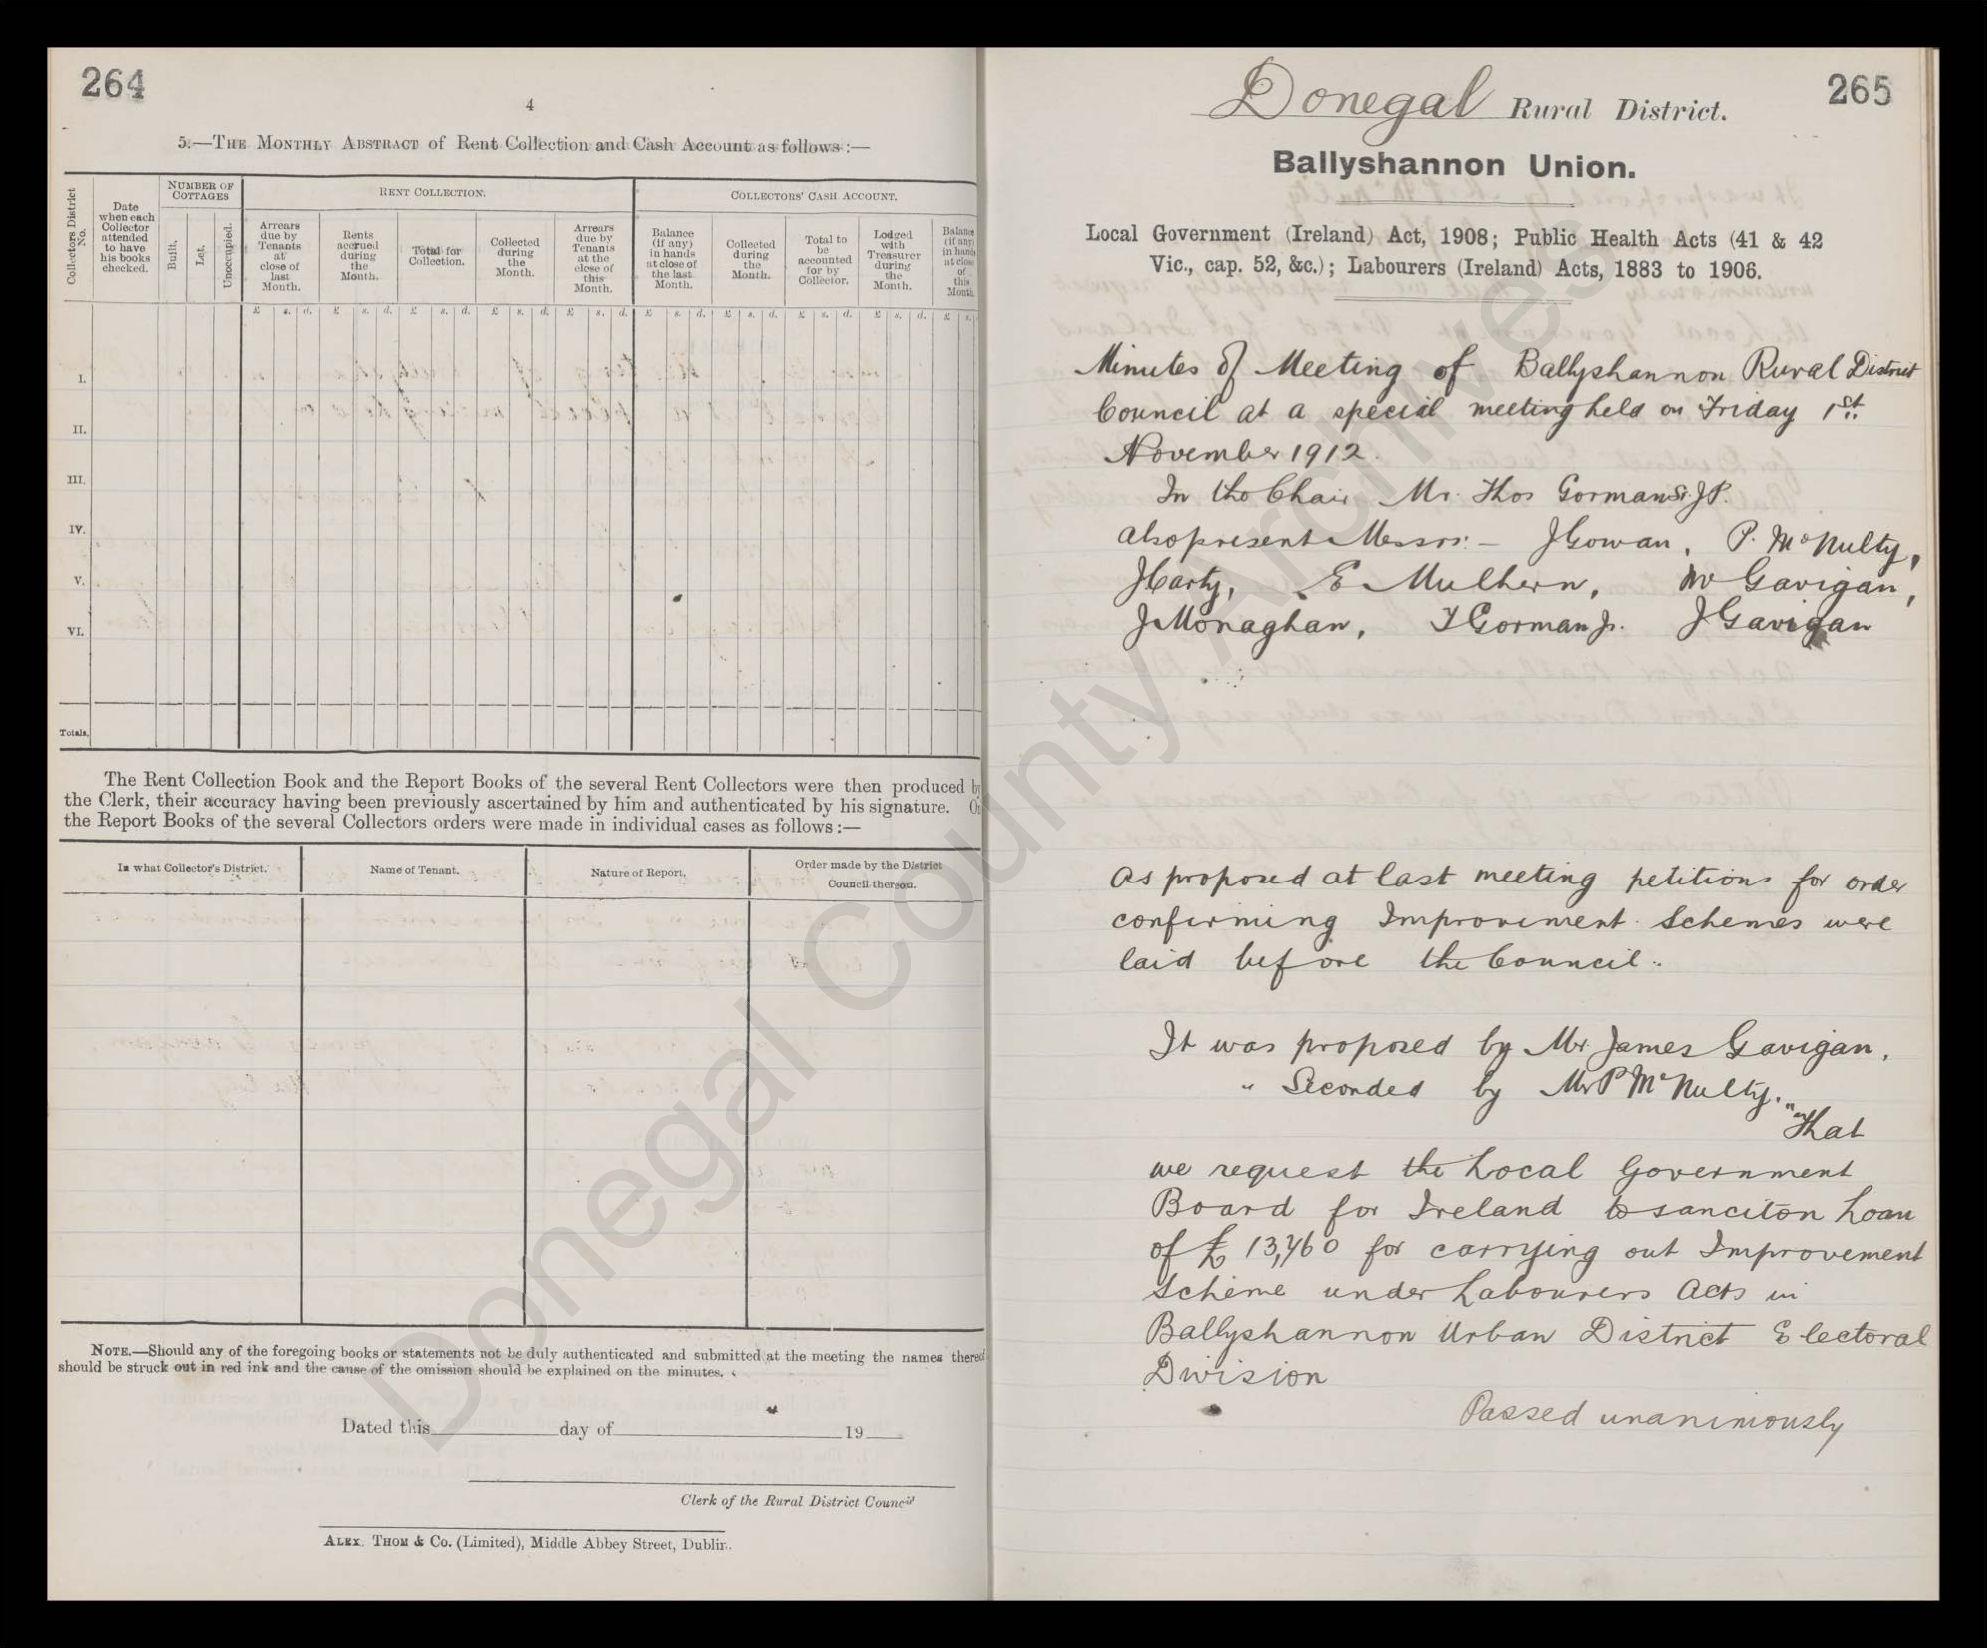 264
4
5.—THE MONTHLY ABSTRACT of Rent Collection and Cash Account as follows:—
Collectors District No.
Date when each Collector attended to have his books checked.
NUMBER OF COTTAGES
Built.
Let.
Unoccupied.
RENT COLLECTION.
Arrears due by Tenants at close of last Month.
Rents accrued during the Month.
Total for Collection.
Collected during the Month.
Arrears due by Tenants at the close of this Month.
COLLECTORS' CASH ACCOUNT.
Balance (if any) in hands at close of the last Month.
Collected during the Month.
Total to be accounted for by Collector.
Lodged with Treasurer during the Month.
Balance (if any) in hands at close of this Month.
£ s. d. £ s. d. £ s. d. £ s. d. £ s. d. £ s. d. £ s. d. £ s. d. £ s. d. £ s.
I.
II.
III.
IV.
V.
VI.
Totals,
The Rent Collection Book and the Report Books of the several Rent Collectors were then produced by
the Clerk, their accuracy having been previously ascertained by him and authenticated by his signature. On
the Report Books of the several Collectors orders were made in individual cases as follows:—
In what Collector's District.
Name of Tenant.
Nature of Report.
Order made by the District Council thereon.
NOTE.—Should any of the foregoing books or statements not be duly authenticated and submitted at the meeting the names thereof
should be struck out in red ink and the cause of the omission should be explained on the minutes.
Dated this day of 19
Clerk of the Rural District Council
ALEX. THOM & Co. (Limited), Middle Abbey Street, Dublin.
265
Donegal Rural District.
Ballyshannon Union.
Local Government (Ireland) Act, 1908; Public Health Acts (41 & 42
Vic., cap. 52, &c.); Labourers (Ireland) Acts, 1883 to 1906.
Minutes of Meeting of Ballyshannon Rural District
Council at a special meeting held on Friday 1st.
November 1912.
In the Chair Mr. Thos Gorman Sr. J.P.
also present Messrs:- J Gowan, P. McNulty,
J Carty, E Mulhern, M Gavigan,
J Monaghan, T Gorman Jr. J Gavigan
As proposed at last meeting petitions for order
confirming Improvement Schemes were
laid before the Council.
It was proposed by Mr James Gavigan,
" Seconded by Mr P McNulty.
"That
we request the Local Government
Board for Ireland to sanciton Loan
of £ 13,460 for carrying out Improvement
Scheme under Labourers Acts in
Ballyshannon Urban District Electoral
Division
Passed unanimously
Donegal County Archives